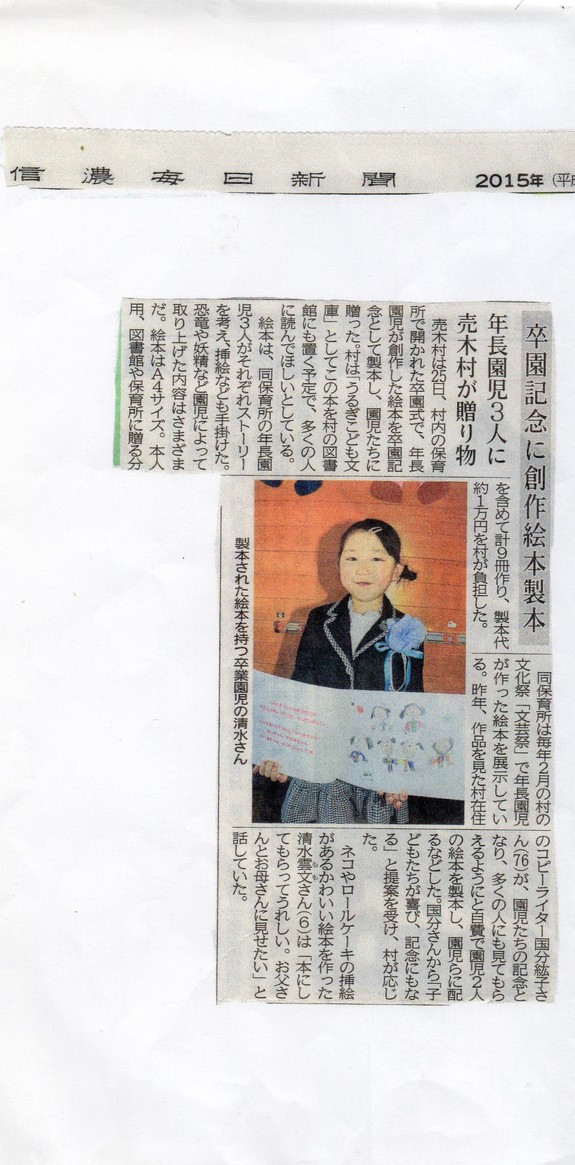 信濃毎日新聞 2015年(平成
卒園記念に創作絵本製本
年長園児3人に
売木村が贈り物
売木村は25日、村内の保育
所で開かれた卒園式で、年長
園児が創作した絵本を卒園記
念として製本し、園児たちに
贈った。村は「うるぎこども文
庫」としてこの本を村の図書
館にも置く予定で、多くの人
に読んでほしいとしている。
絵本は、同保育所の年長園
児3人がそれぞれストーリー
を考え、挿絵なども手掛けた。
恐竜や妖精など園児によって
取り上げた内容はさまざま
だ。絵本はA4サイズ。本人
用、図書館や保育所に贈る分
を含めて計9冊作り、製本代
約1万円を村が負担した。
同保育所は毎年2月の村の
文化祭「文芸祭」で年長園児
が作った絵本を展示してい
る。昨年、作品を見た村在住
のコピーライター国分紘子さ
ん(76)が、園児たちの記念と
なり、多くの人にも見てもら
えるようにと自費で園児2人
の絵本を製本し、園児らに配
るなどした。国分さんから「子
どもたちが喜び、記念にもな
る」と提案を受け、村が応じ
た。
ネコやロールケーキの挿絵
があるかわいい絵本を作った
清水雲文さん(6)は「本にし
てもらってうれしい。お父さ
んとお母さんに見せたい」と
話していた。
製本された絵本を持つ卒業園児の清水さん